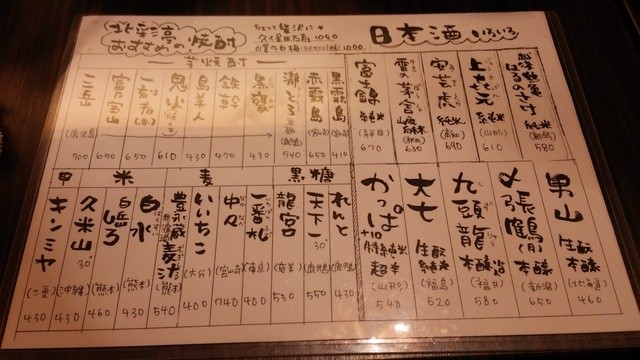 日本酒 いろいろ
純米
(新潟)
580
上喜元
純米
(山形)
610
安芸虎
純米
(高知)
690
雪の茅舎
山廃純米
(秋田)
630
富士錦
純米
(静岡)
670
男山
生酛
本醸
(北海道)
460
〆張鶴(月)
本醸
(新潟)
650
九頭龍
本醸造
(福井)
580
大七
生酛
純米
(福島)
520
かっぱ
+10
特別純米
超辛
(山形)
540
ちょっと贅沢に
久保田万寿 1050
1000
おすすめの焼酎
芋焼酎
黒霧島
(宮崎)
410
赤霧島
(宮崎)
650
540
黒甕
430
鉄幹
470
島美人
430
鬼火
610
一刻者(赤)
650
富乃宝山
650
三岳
(鹿児島)
700
黒糖
れんと
(鹿児島)
430
天下一
30°
(鹿児島)
550
龍宮
(奄美)
530
麦
一番札
(東京)
400
中々
(宮崎)
740
いいちこ
(大分)
400
豊永蔵
麦汁
(熊本)
540
米
白水
はくすい
(熊本)
430
白岳しろ
(熊本)
460
久米山
30°
(沖縄)
430
甲
キンミヤ
(三重)
430